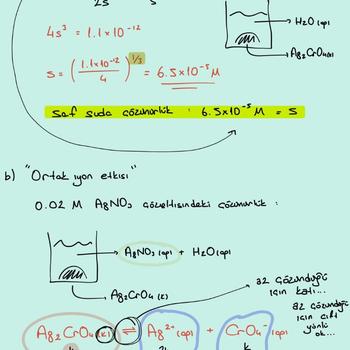 2s s
4s³ = 1.1×10⁻¹²
H₂O(ap)
Ag₂CrO₄(k)
s = (1.1×10⁻¹² / 4)^1/3 = 6.5×10⁻⁵ M
Saf suda çözünürlük : 6.5×10⁻⁵ M = s
b) "Ortak iyon etkisi"
0.02 M AgNO₃ çözeltisindeki çözünürlük :
AgNO₃(ap) + H₂O(ap)
Ag₂CrO₄(k)
az çözündüğü
için katı...
az çözündüğü
için çift
yönlü
ok...
Ag₂CrO₄(k) ⇌ Ag²⁺(ap) + CrO₄⁻(ap)
k